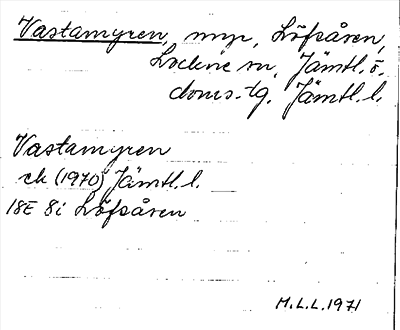 Vastamyren, myr, Löfsåsen,
Lockne sn, Jämtl. ö.
doms.-tg. Jämtl. l.
Vastamyren
ek (1970) Jämtl. l.
18E 8i Löfsåsen
M.L.L. 1971